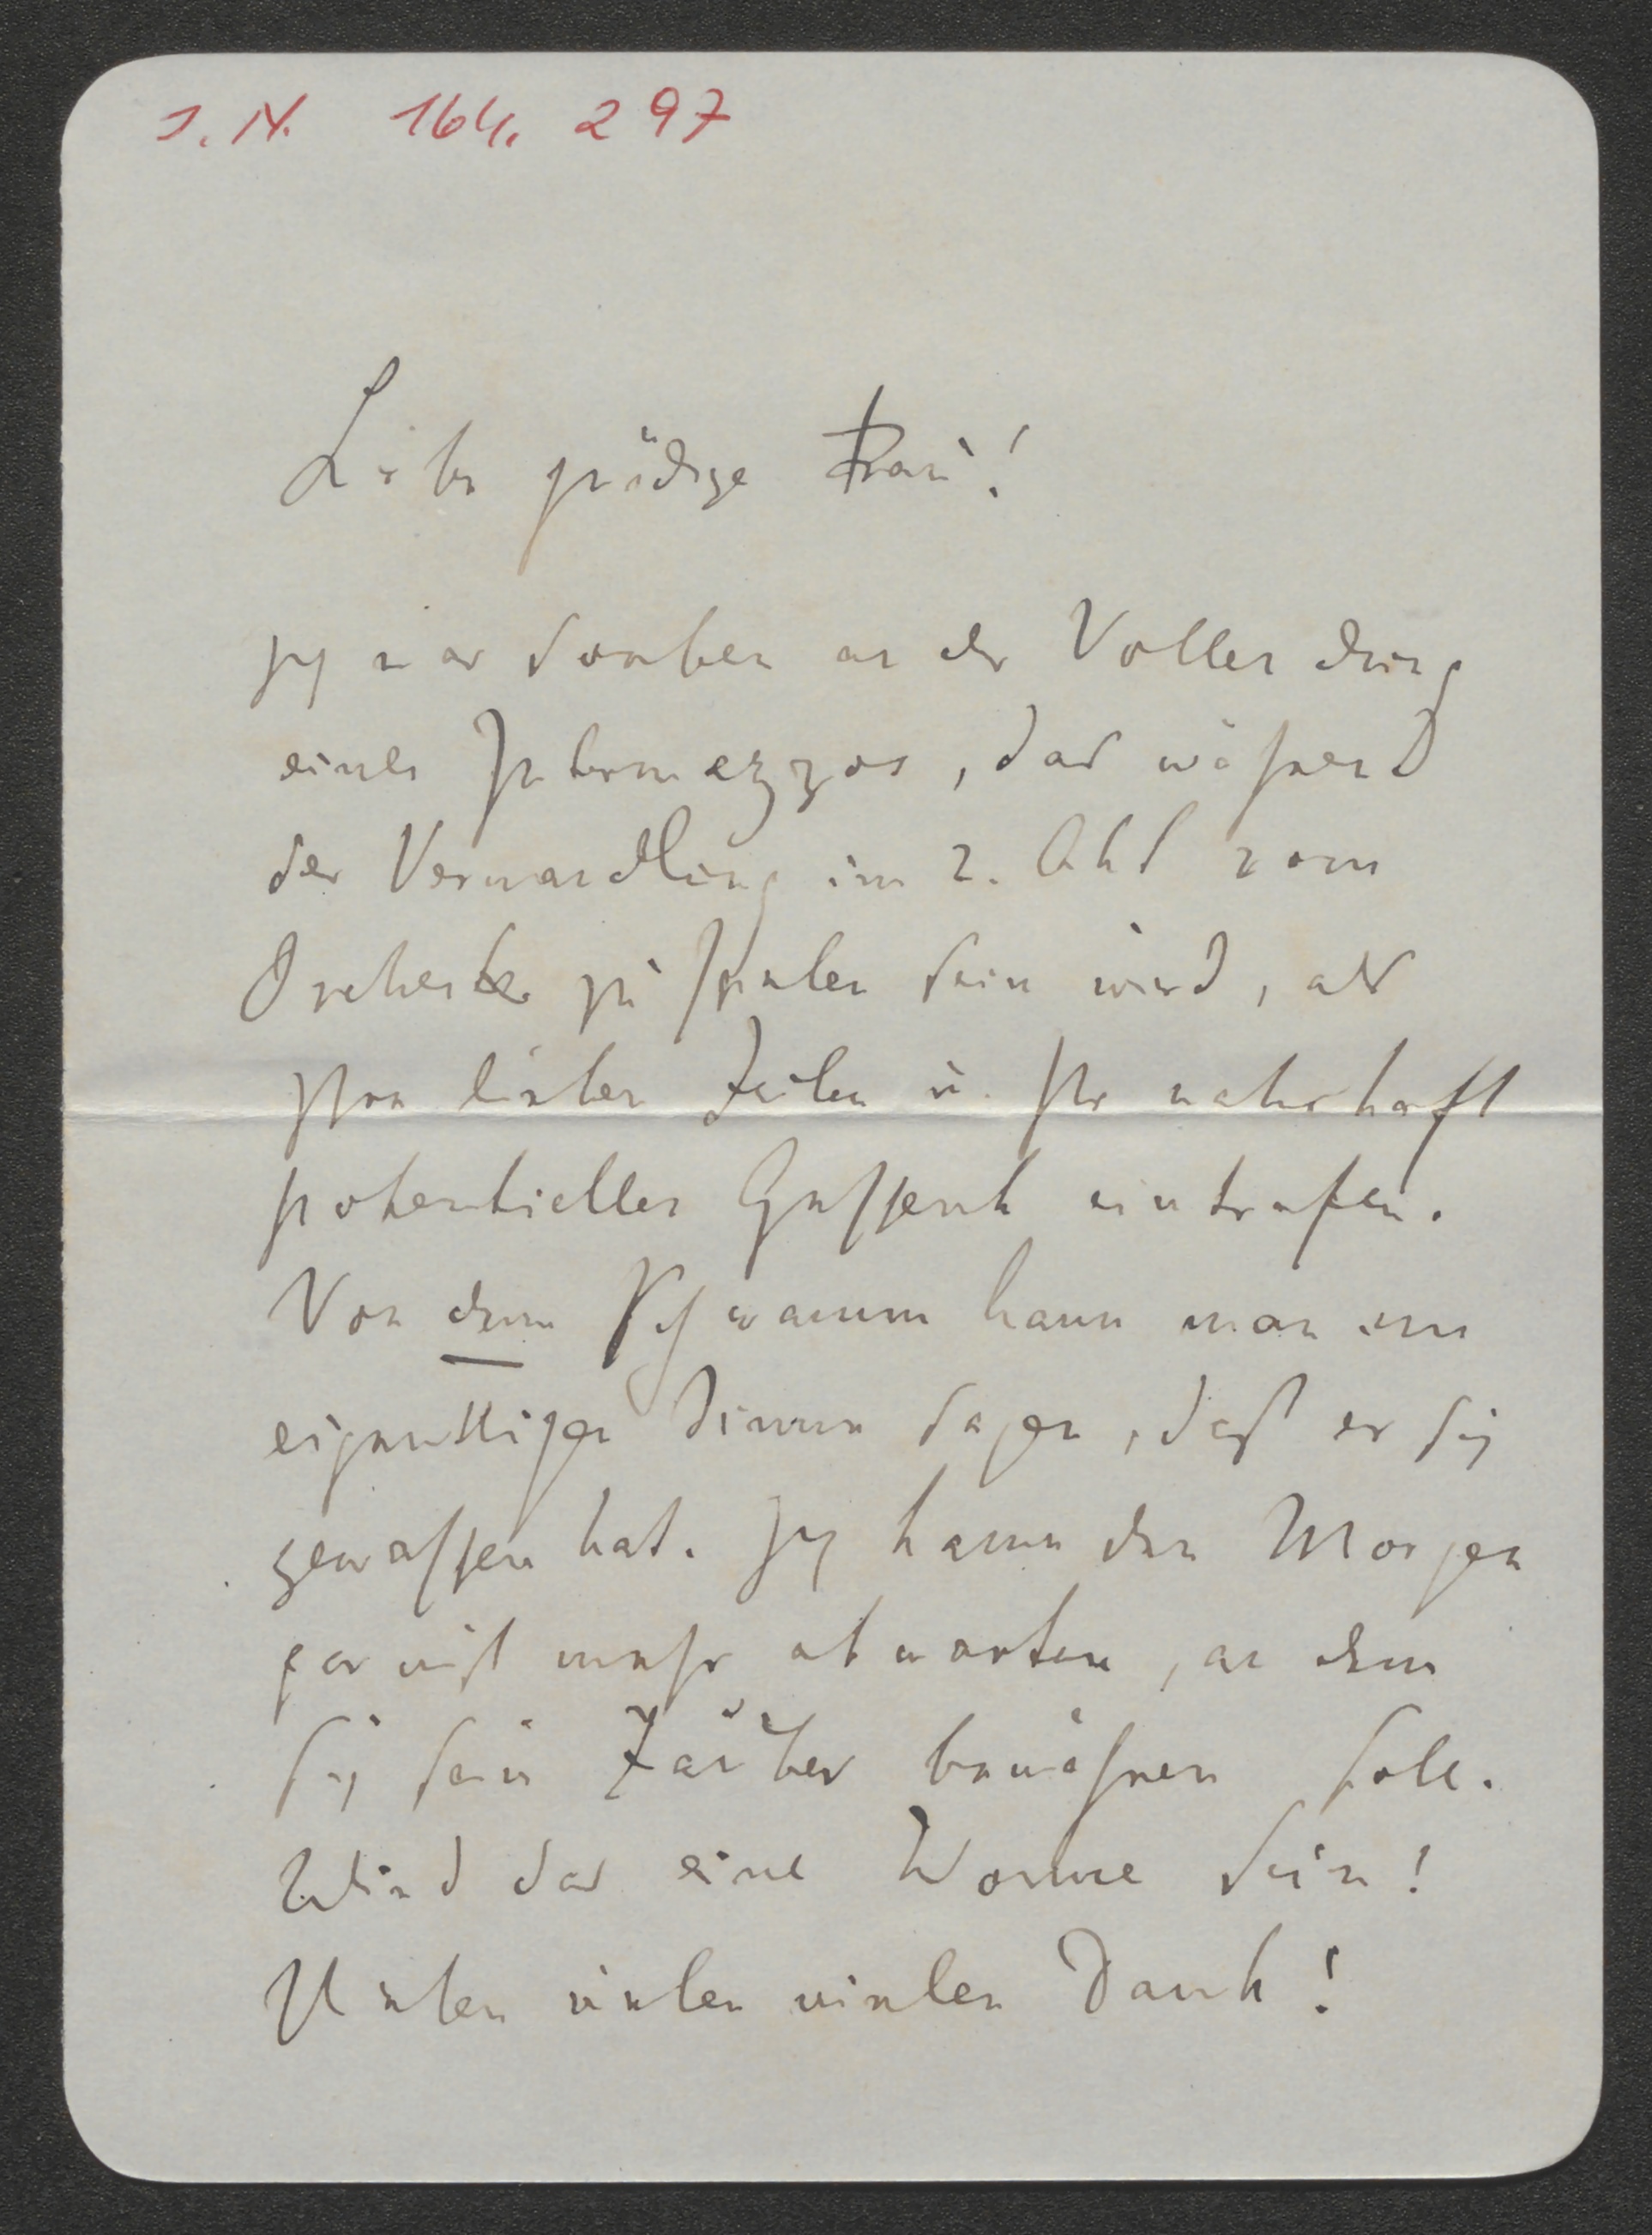 I. N. 164.297
Liebe gnädige Frau!
Ich war soeben an der Vollendung
eines Intermezzos, das während
der Verwandlung im 2. Akt vom
Orchester zu spielen sein wird, als
Ihre lieben Zeilen u. Ihr wahrhaft
potentielles Geschenk eintrafen.
Von dem Schwamm kann man im
eigentlichen Sinne sagen, daß er sich
gewaschen hat. Ich kann den Morgen
gar nicht mehr abwarten, an dem
sich sein Zauber bewähren soll.
Wird das eine Wonne sein!
Vielen vielen vielen Dank!